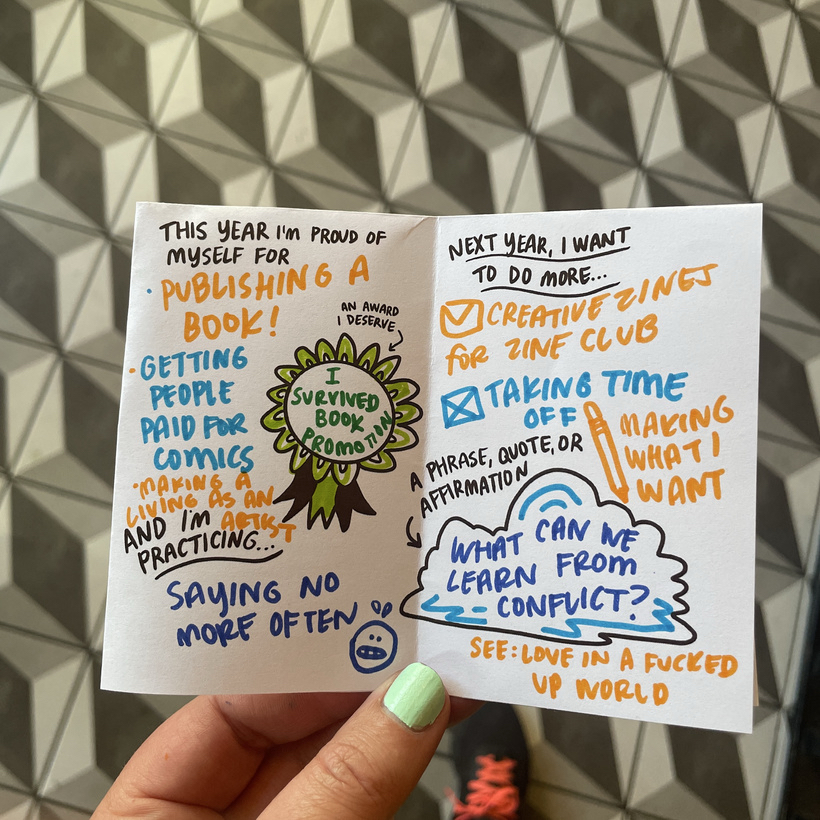 THIS YEAR I'm PROUD OF
MYSELF FOR
· PUBLISHING A
BOOK!
AN AWARD
I DESERVE
I
SURVIVED
BOOK
PROMOTION
· GETTING
PEOPLE
PAID FOR
COMICS
· MAKING A
LIVING AS AN
ARTIST
AND I'M
PRACTICING...
SAYING NO
MORE OFTEN
NEXT YEAR, I WANT
TO DO MORE...
CREATIVE ZINES
FOR ZINE CLUB
TAKING TIME
OFF
MAKING
WHAT I
WANT
A PHRASE, QUOTE, OR
AFFIRMATION
WHAT CAN WE
LEARN FROM
CONFLICT?
SEE: LOVE IN A FUCKED
UP WORLD